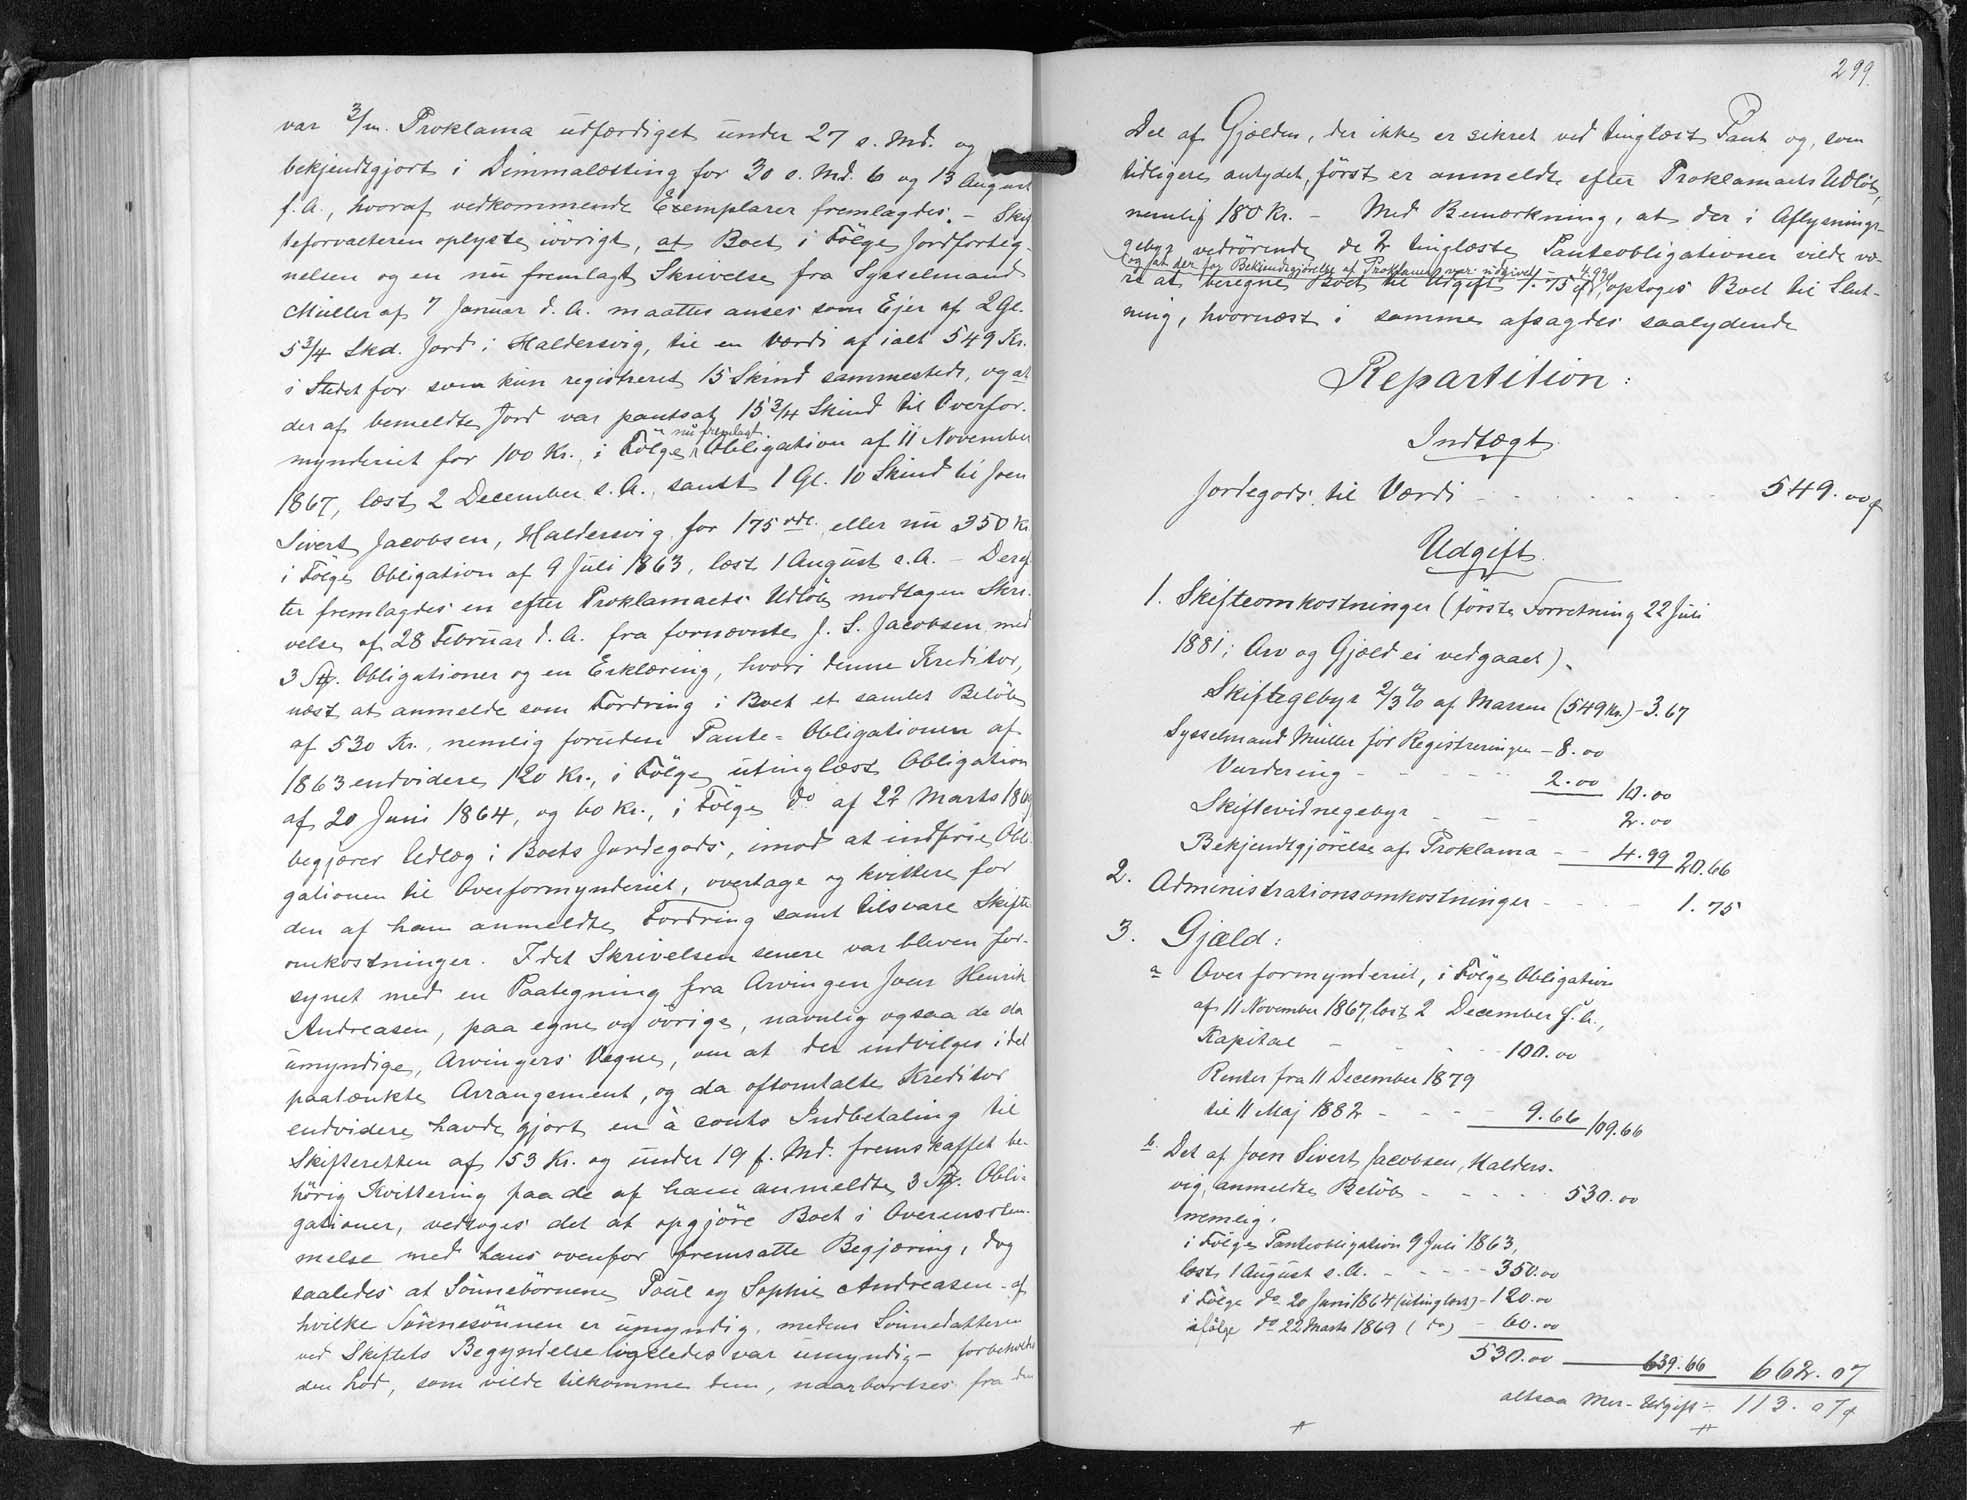 var 3/m. Proklama udfærdiget under 27 s. Md. og
bekjendtgjort i Dimmalætting for 30 s. Md. 6 og 13 August
f. A., hvoraf vedkommende Exemplarer fremlagdes. - Skif
teforvalteren oplyste iövrigt, at Boet i Fölge Jordforteg-
nelsen og en nu fremlagt Skrivelse fra Sysselmand
Müller af 7 Januar d. A. maattes anses som Ejer af 2 Gl.
5 3/4 Skd. Jord i Haldersvig, til en Værdi af ialt 549 Kr.
i Stedet for som kun registreret 15 Skind sammesteds, og at
der af bemeldte Jord var pantsat 15 3/4 Skind til Overfor-
mynderiet for 100 Kr., i Fölge nu fremlagt Obligation af 11 November
1867, læst 2 December s. A., samt 1 Gl. 10 Skind til Joen
Sivert Jacobsen, Haldersvig for 175 rdl. eller nu 350 Kr.
i Fölge Obligation af 9 Juli 1863, læst 1 August s. A. - Deref
ter fremlagdes en efter Proklamaets Udlöb modtagen Skri-
velse af 28 Februar d. A. fra fornævnte J. S. Jacobsen med
3 Stk. Obligationer og en Erklæring, hvori denne Kreditor,
næst at anmelde som Fordring i Boet et samlet Belöb
af 530 Kr., nemlig foruden Pante-Obligationen af
1863 endvidere 120 Kr., i Fölge utinglæst Obligation
af 20 Juni 1864, og 60 Kr., i Fölge do af 22 Marts 1869
begjærer Udlæg i Boets Jordegods, imod at indfrie Obli
gationen til Overformynderiet, overtage og kvittere for
den af ham anmeldte Fordring samt tilsvare Skifte
omkostninger. Idet Skrivelsen senere var bleven for-
synet med en Paategning fra Arvingen Joen Henrik
Andreasen, paa egne og övrige, navnlig ogsaa de da
umyndige, Arvingers Vegne, om at der indvilges i det
paatænkte Arrangement, og da oftomtalte Kreditor
endvidere havde gjort en à conto Indbetaling til
Skifteretten af 153 Kr. og under 19 f. Md. fremskaffet be-
hörig Kvittering paa de af ham anmeldte 3 Stk. Obli-
gationer, vedtoges det at opgjöre Boet i Overensstem-
melse med hans ovenfor fremsatte Begjæring, dog
saaledes at Sönnebörnene Poul og Sophie Andreasen - af
hvilke Sönnesönnen er umyndig, medens Sönnedatteren
ved Skiftets Begyndelse ligeledes var umyndig - forbeholdes
den Lod, som vilde tilkomme dem, naar bortses fra den
299.
Del af Gjælden, der ikke er sikret ved tinglæst Pant og, som
tidligere antydet, först er anmeldt efter Proklamaets Udlöb,
nemlig 180 Kr. - Med Bemærkning, at der i Aflysnings-
gebyr vedrörende de 2 tinglæste Panteobligationer vilde væ-
og at der for Bekjendtgjörelse af Proklama var udgivet - 4.99
re at beregne Boet til Udgift 1.75 ø, optoges Boet til Slut-
ning, hvornæst i samme afsagdes saalydende
Repartition:
Indtægt.
Jordegods til Værdi - - - - 549.00 ø
Udgift.
1. Skifteomkostninger (förste Forretning 22 Juli
1881; Arv og Gjæld ei vedgaaet).
Skiftegebyr 2/3 % af Massen (549 Kr.) - 3.67
Sysselmand Müller for Registreringen - 8.00
Vurdering - - - 2.00 10.00
Skiftevidnegebyr - - - 2.00
Bekjendtgjörelse af Proklama - - 4.99 20.66
2. Administrationsomkostninger - - - 1.75
3. Gjæld:
a Overformynderiet, i Fölge Obligation
af 11 November 1867, læst 2 December s. A.,
Kapital - - - 100.00
Renter fra 11 December 1879
til 11 Maj 1882 - - - 9.66 109.66
b. Det af Joen Sivert Jacobsen, Halders-
vig, anmeldte Belöb - - - 530.00
nemlig:
i Fölge Panteobligation 9 Juli 1863,
læst 1 August s. A. - - - 350.00
i Fölge do 20 Juni 1864 (utinglæst) - 120.00
i Fölge do 22 Marts 1869 (do) - 60.00
530.00 639.66 662.07
altsaa Mer-Udgift ÷ 113.07 ø